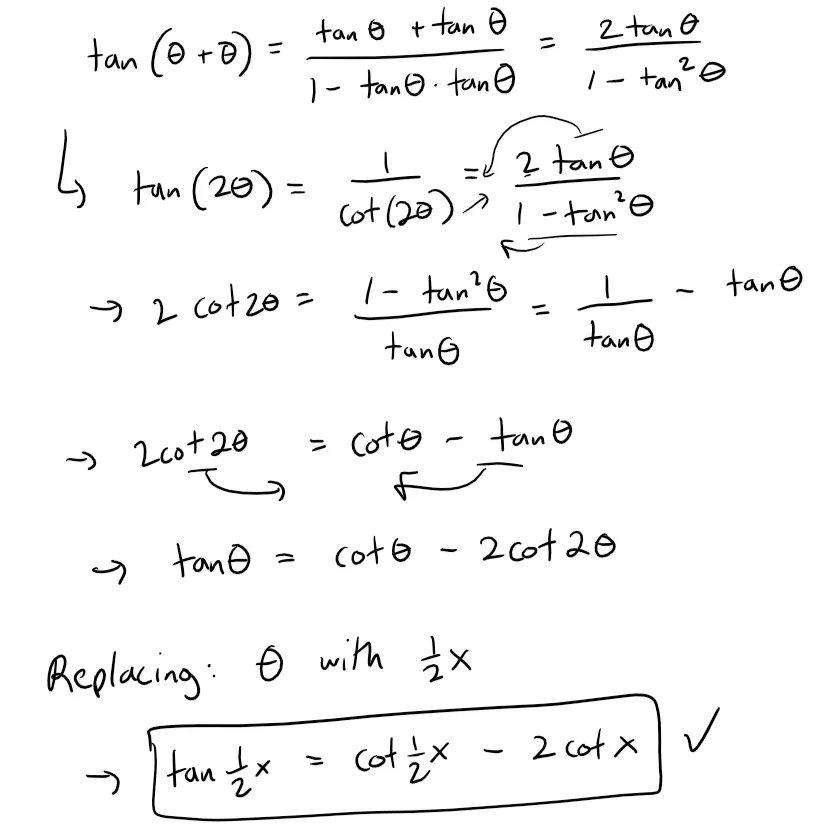 tan(θ + θ) = (tan θ + tan θ)/(1 - tan θ · tan θ) = (2 tan θ)/(1 - tan² θ)
↳ tan(2θ) = 1/(cot(2θ)) = (2 tan θ)/(1 - tan² θ)
→ 2 cot 2θ = (1 - tan² θ)/(tan θ) = 1/(tan θ) - tan θ
→ 2cot 2θ = cot θ - tan θ
→ tan θ = cot θ - 2 cot 2θ
Replacing: θ with ½ x
→ tan ½ x = cot ½ x - 2 cot x ✓